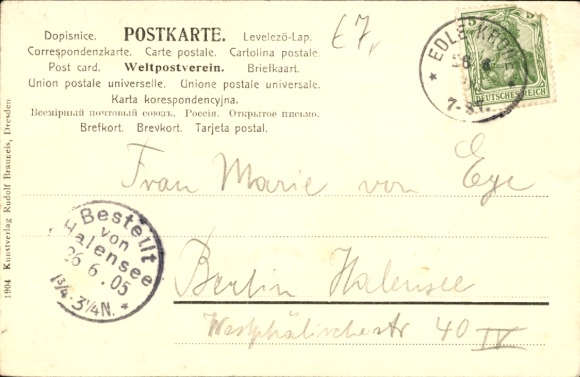 Dopisnice. POSTKARTE. Levelező-Lap.
Correspondenzkarte. Carte postale. Cartolina postale.
Post card. Weltpostverein. Briefkaart.
Union postale universelle. Unione postale universale.
Karta korespondencyjna.
Всемірный почтовый союзъ. Россія. Открытое письмо.
Brefkort. Brevkort. Tarjeta postal.
£7,
DEUTSCHES REICH
7-8V.
Frau Marie von Eye
Bestellt
von
Halensee
26.6.05
1¾-3¼N.
Berlin Halensee
Westphälischestr 40 IV
1904 Kunstverlag Rudolf Brauneis, Dresden